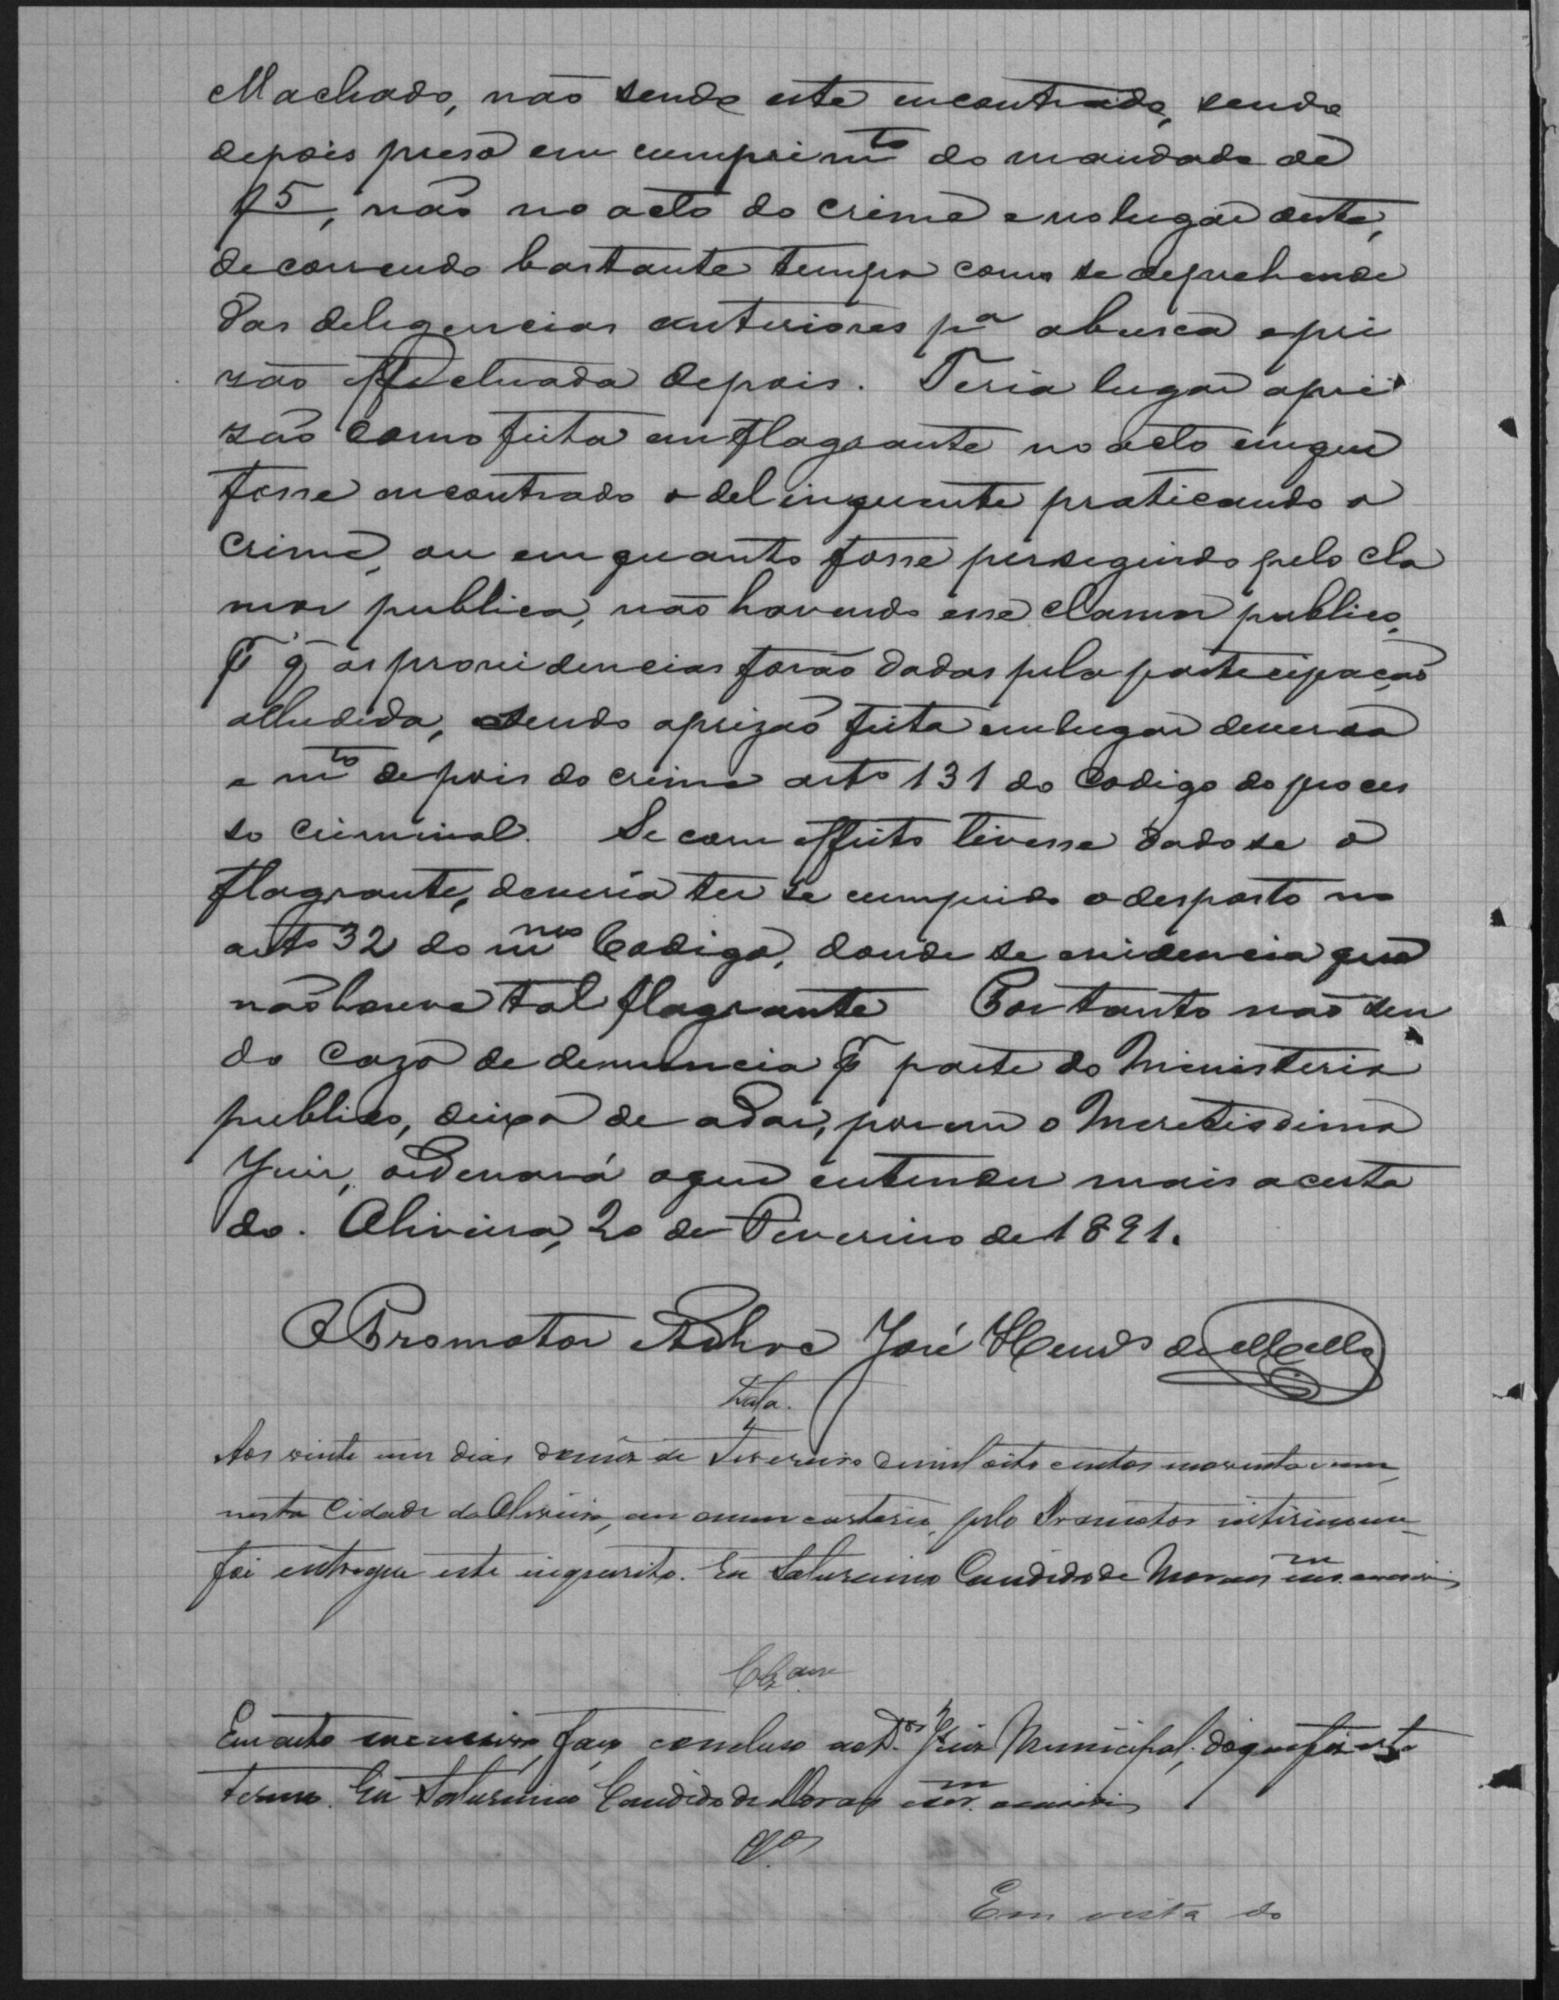 Machado, não sendo este encontrado, sendo
depois preso em cumprimto do mandado de
f 5, não no acto do crime e no lugar deste,
decorrendo bastante tempo como se deprehende
das deligencias anteriores pa a busca e pri
zão effectuada depois. Teria lugar a pri
zão como feita em flagrante no acto em que
fosse encontrado o delinquente praticando o
crime, ou em quanto fosse perseguido pelo cla
mor publico, não havendo esse clamor publico,
p q as providencias forão dadas pela participação
alludida, sendo a prizão feita em lugar deverso
e mto depois do crime arto 131 do Codigo do proces
so criminal. Se com effeito tivesse dado se o
flagrante, deveria ter se cumprido o desposto no
arto 32 do mmo Codigo, donde se evidencia que
não houve tal flagrante Portanto não sen
do cazo de denuncia p parte do Ministerio
publico, deixo de a dar, porem o Meretissimo
Juiz, ordenará o que entender mais acerta
do. Oliveira, 20 de Fevereiro de 1891.
O Promotor Adhoc José Hends de Mello
Data.
Aos vinte um dias do mez de Fevereiro de mil oito centos noventa e um,
nesta Cidade da Oliveira, em meu cartorio, pelo Promotor interino me
foi entregue este inquerito. Eu Saturnino Candido de Moraes
Clzam
Em acto sucessivo faço concluso ao Dor Juiz Municipal, do que fiz este
termo. Eu Saturnino Candido de Moraes
Em vista do